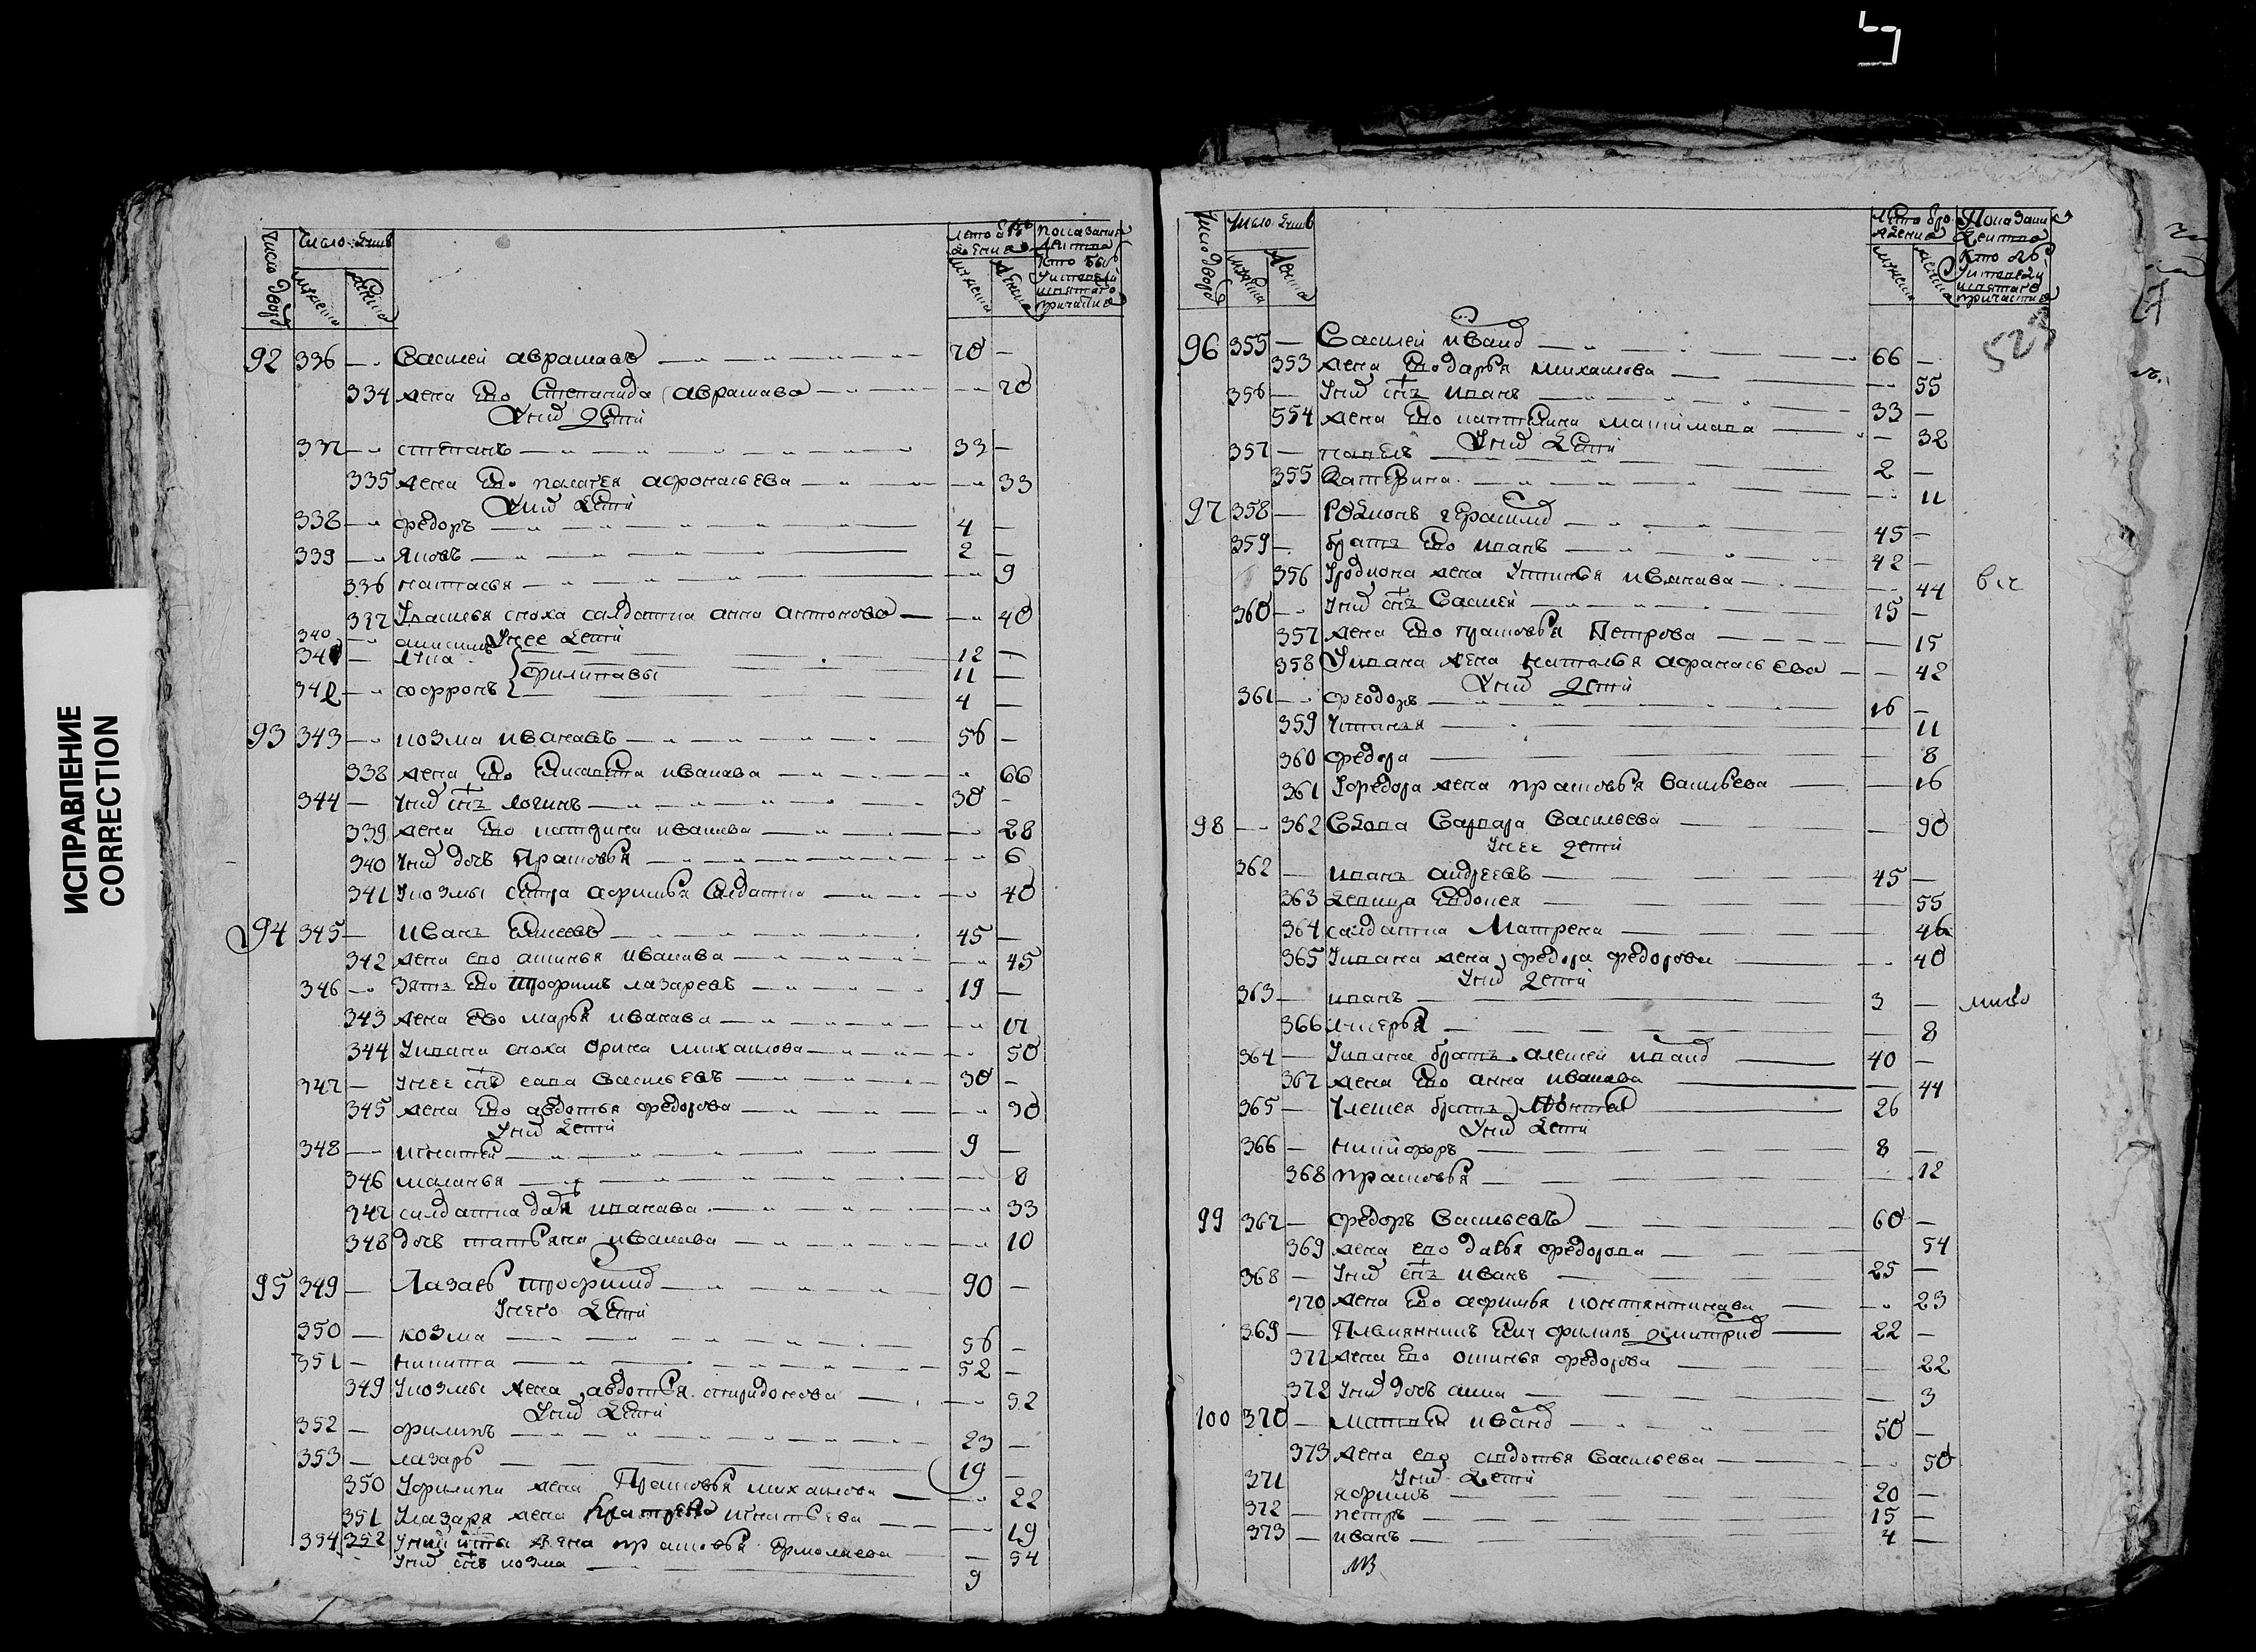 ИСПРАВЛЕНИЕ
CORRECTION
число дворо
число душъ
мужеска
женска
лето отъ рождения
мужеска
женска
92 336 — Василей аврамавъ 70 —
334 жена ево Степанида аврамава — 70
у них дети
337 — степанъ 33 —
335 жена ево палагея афонасьева — 33
у них дети
338 — федоръ 4 —
339 — яковъ 2 —
336 настасья — 9
337 у василья сноха салдатка анна антонова — 40
340 — анисимъ у нее дети 12 —
341 — лука 11 —
филипавы
342 — софронъ 4 —
93 343 — козма иванавъ 56 —
338 жена ево Елисавета иванава — 66
344 — у них снъ логинъ 30 —
339 жена ево катерина иванава — 28
340 у них дочь Прасковья — 6
341 у козмы сестра афимья Салдатка — 40
94 345 — Иванъ Елисеевъ 45 —
342 жена ево аксинья иванава — 45
346 — зять ево трофимъ лазаревъ 19 —
343 жена ево марья иванава — 17
344 у ивана сноха орина михаилова — 50
347 — у нее снъ сава васильевъ 30 —
345 жена ево авдотья федорова — 30
у них дети
348 — игнатей 9 —
346 маланья — 8
347 салдатка дарья иванава — 33
348 дочь татьяна иванава — 10
95 349 — Лазарь трофимов 90 —
у него дети
350 — козма 56 —
351 — никита 52 —
349 у козмы жена авдотья спиридонова — 52
у них дети
352 — филипъ 23 —
353 — лазарь 19 —
350 у филипа жена Прасковья михаилова — 22
351 у лазаря жена игнатьева — 19
354 352 у никиты жена прасковья Ермолаева — 54
у них снъ козма 9
число дворо
число душъ
мужеска
женска
мужеска
женска
523
96 355 — Василей иванов 66 —
353 жена ево дарья михаилова — 55
356 — у них снъ иванъ 33 —
354 жена ево катерина максимава — 32
у них дети
357 — павелъ 2 —
355 Катерина — 11
97 358 — Родионъ герасимов 45 —
359 — братъ ево иванъ 42 —
356 у родиона жена устинья иванава — 44
360 — у них снъ Василей 15 —
357 жена ево прасковья Петрова — 15
358 у ивана жена наталья афанасьева — 42
у них дети
361 — феодоръ 16 —
359 устинья — 11
360 федора — 8
361 у федора жена прасковья васильева — 16
98 — 362 вдова варвара васильева — 90
у нее дети
362 — иванъ андреевъ 45 —
363 девица Евдокея — 55
364 салдатка Матрена — 46
365 у ивана жена федора федорова — 40
у них дети
363 — иванъ 3 —
366 лукерья — 8
364 — у ивана братъ алексей иванов 40 —
367 жена ево анна иванава — 44
365 — у алексея братъ 26
у них дети
366 — никифоръ 8 —
368 прасковья — 12
99 367 — федоръ Васильевъ 60 —
369 жена ево дарья федорова — 54
368 — у них снъ иванъ 25 —
370 жена ево афимья константинава — 23
369 — Племянникъ филипъ дмитриев 22 —
371 жена ево аксинья федорова — 22
372 у них дочь анна — 3
100 370 — матвей иванов 50 —
373 жена ево авдотья васильева — 50
у них дети
371 — яфимъ 20 —
372 — петръ 15 —
373 — иванъ 4 —